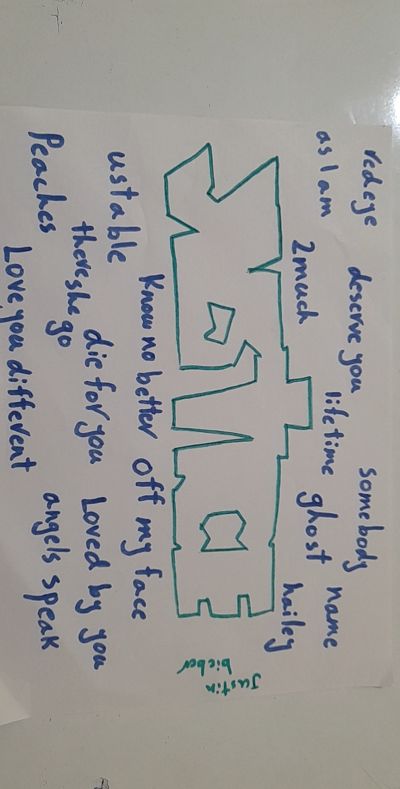 redeye deserve you somebody
as I am lifetime name
2much ghost hailey
Justin
bieber
Know no better off my face
ustable die for you Loved by you
there she go
Peaches angels speak
Love you different